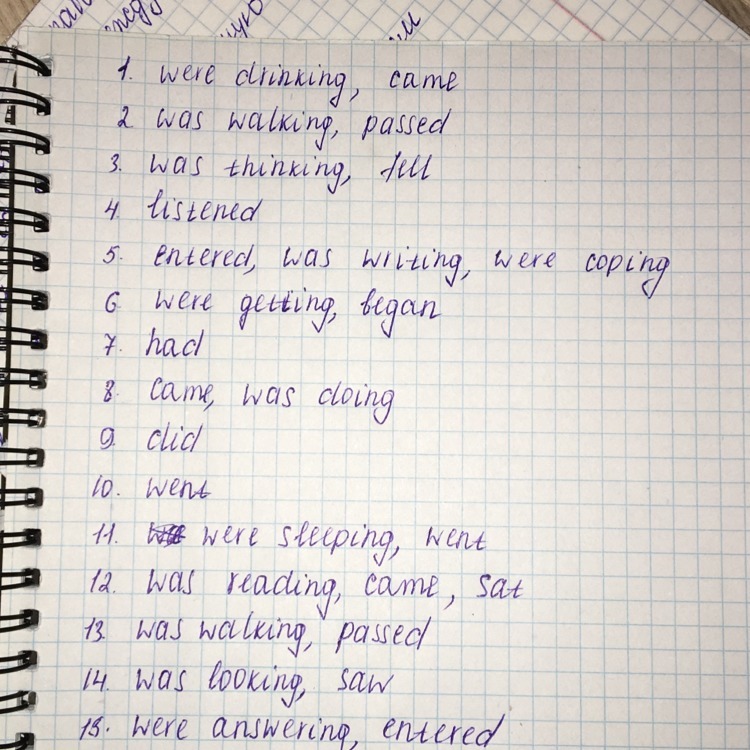 1. were drinking, came
2 was walking, passed
3. was thinking, fell
4. listened
5. entered, was writing, were coping
6. were getting, began
7. had
8. came, was doing
9. did
10. went
11. were sleeping, went
12. was reading, came, sat
13. was walking, passed
14. was looking, saw
15. were answering, entered